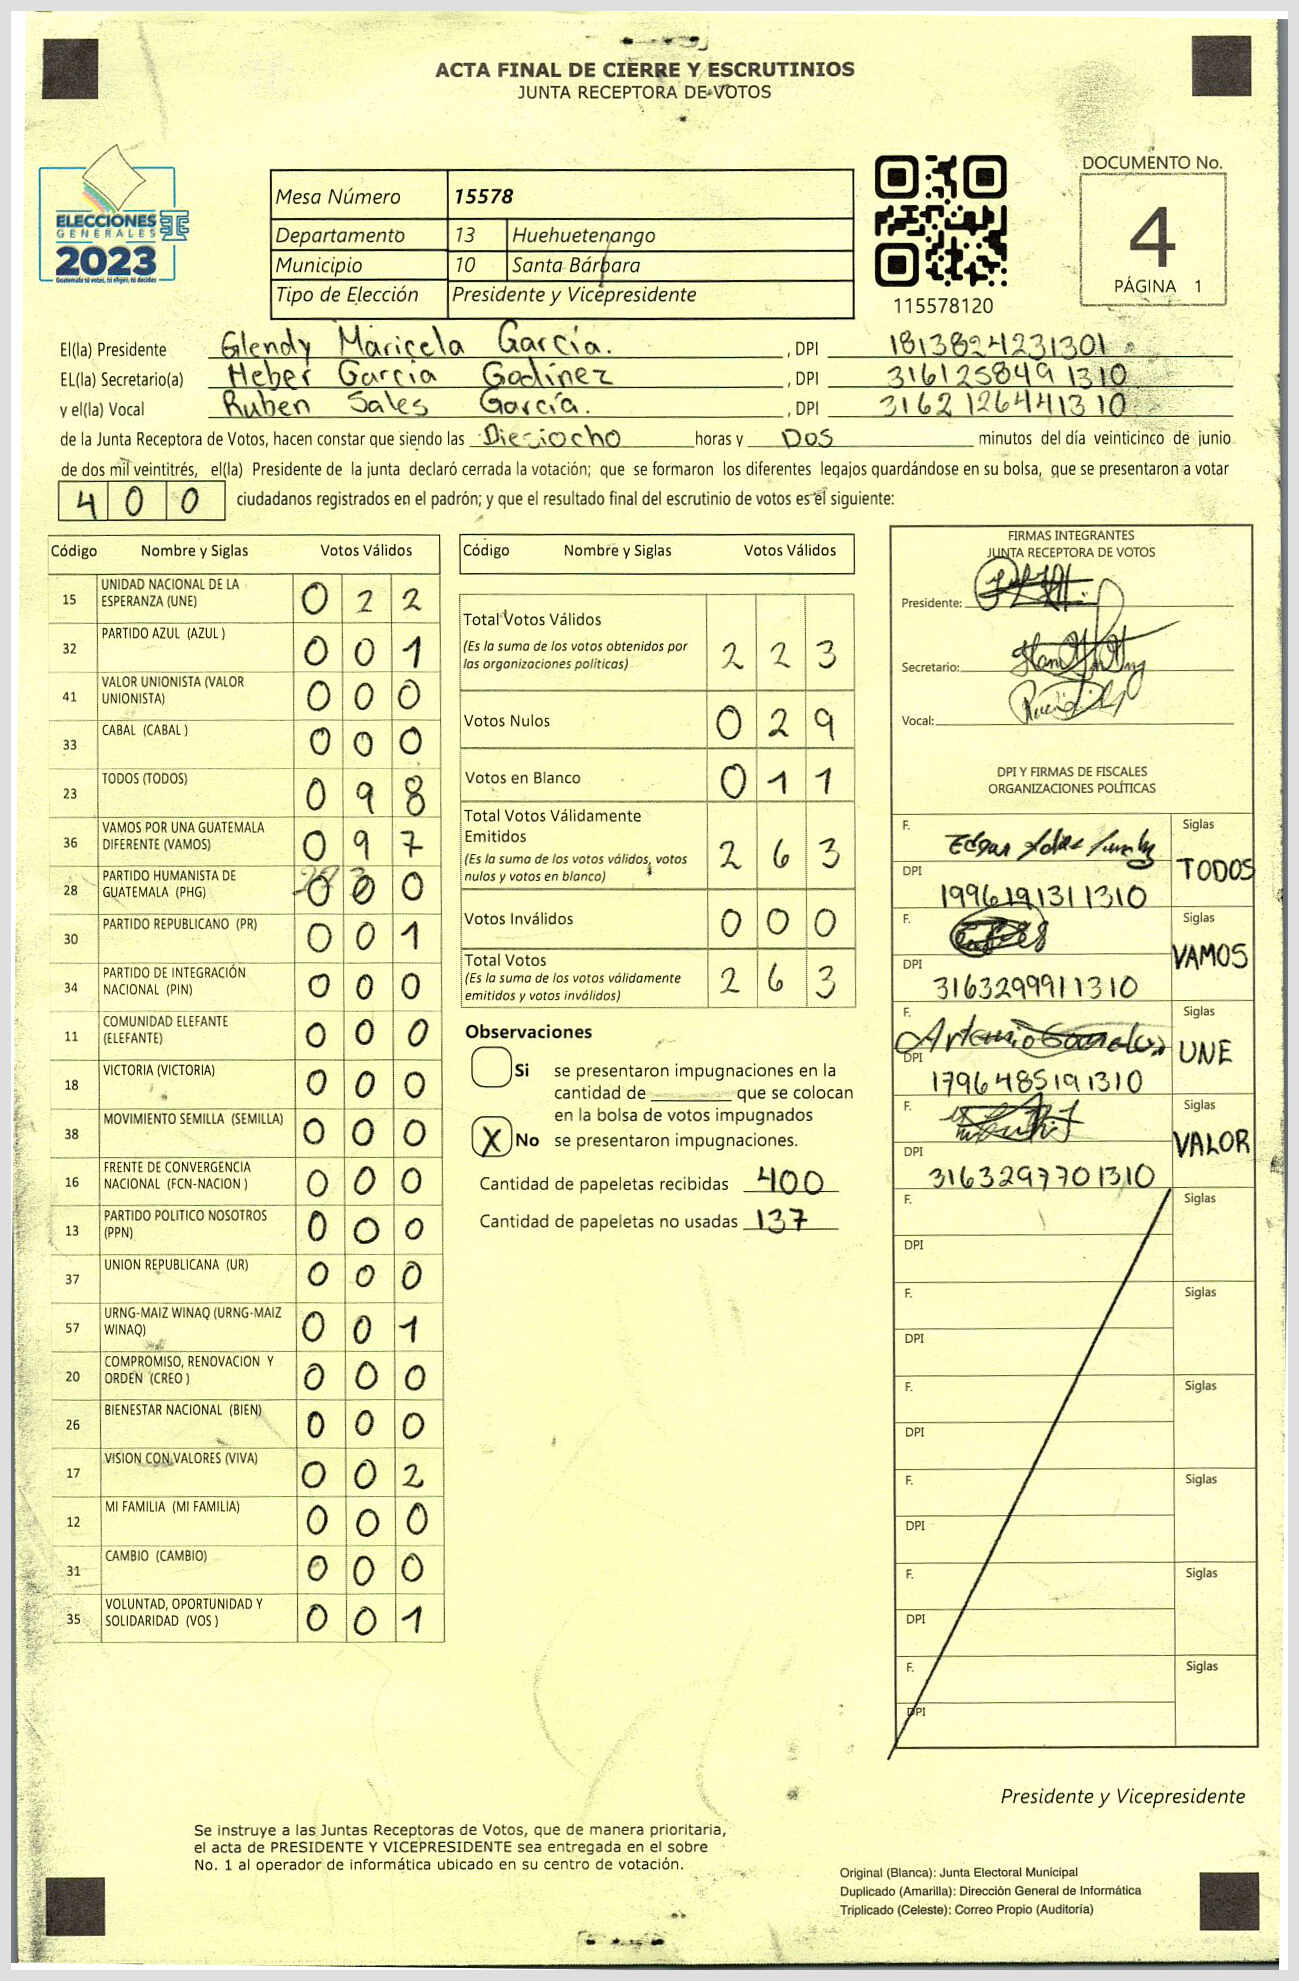 ACTA FINAL DE CIERRE Y ESCRUTINIOS
JUNTA RECEPTORA DE VOTOS
ELECCIONES
GENERALES
2023
Guatemala tú votas, tú eliges, tú decides
Mesa Número 15578
Departamento 13 Huehuetenango
Municipio 10 Santa Bárbara
Tipo de Elección Presidente y Vicepresidente
115578120
DOCUMENTO No.
4
PÁGINA 1
El(la) Presidente Glendy Maricela García. , DPI 1813824231301
EL(la) Secretario(a) Heber García Godínez , DPI 3161258491310
y el(la) Vocal Ruben Sales García. , DPI 3162126441310
de la Junta Receptora de Votos, hacen constar que siendo las Dieciocho horas y Dos minutos del día veinticinco de junio
de dos mil veintitrés, el(la) Presidente de la junta declaró cerrada la votación; que se formaron los diferentes legajos quardándose en su bolsa, que se presentaron a votar
400 ciudadanos registrados en el padrón; y que el resultado final del escrutinio de votos es el siguiente:
Código Nombre y Siglas Votos Válidos
15 UNIDAD NACIONAL DE LA ESPERANZA (UNE) 0 2 2
32 PARTIDO AZUL (AZUL ) 0 0 1
41 VALOR UNIONISTA (VALOR UNIONISTA) 0 0 0
33 CABAL (CABAL ) 0 0 0
23 TODOS (TODOS) 0 9 8
36 VAMOS POR UNA GUATEMALA DIFERENTE (VAMOS) 0 9 7
28 PARTIDO HUMANISTA DE GUATEMALA (PHG) 0 0 0
30 PARTIDO REPUBLICANO (PR) 0 0 1
34 PARTIDO DE INTEGRACIÓN NACIONAL (PIN) 0 0 0
11 COMUNIDAD ELEFANTE (ELEFANTE) 0 0 0
18 VICTORIA (VICTORIA) 0 0 0
38 MOVIMIENTO SEMILLA (SEMILLA) 0 0 0
16 FRENTE DE CONVERGENCIA NACIONAL (FCN-NACION ) 0 0 0
13 PARTIDO POLITICO NOSOTROS (PPN) 0 0 0
37 UNION REPUBLICANA (UR) 0 0 0
57 URNG-MAIZ WINAQ (URNG-MAIZ WINAQ) 0 0 1
20 COMPROMISO, RENOVACION Y ORDEN (CREO ) 0 0 0
26 BIENESTAR NACIONAL (BIEN) 0 0 0
17 VISION CON VALORES (VIVA) 0 0 2
12 MI FAMILIA (MI FAMILIA) 0 0 0
31 CAMBIO (CAMBIO) 0 0 0
35 VOLUNTAD, OPORTUNIDAD Y SOLIDARIDAD (VOS ) 0 0 1
Código Nombre y Siglas Votos Válidos
Total Votos Válidos
(Es la suma de los votos obtenidos por
las organizaciones políticas) 2 2 3
Votos Nulos 0 2 9
Votos en Blanco 0 1 1
Total Votos Válidamente
Emitidos
(Es la suma de los votos válidos, votos
nulos y votos en blanco) 2 6 3
Votos Inválidos 0 0 0
Total Votos
(Es la suma de los votos válidamente
emitidos y votos inválidos) 2 6 3
Observaciones
Si se presentaron impugnaciones en la
cantidad de que se colocan
en la bolsa de votos impugnados
X No se presentaron impugnaciones.
Cantidad de papeletas recibidas 400
Cantidad de papeletas no usadas 137
FIRMAS INTEGRANTES
JUNTA RECEPTORA DE VOTOS
Presidente:
Secretario:
Vocal:
DPI Y FIRMAS DE FISCALES
ORGANIZACIONES POLÍTICAS
F. Edgar Siglas
DPI 1996191311310 TODOS
F. Siglas
DPI 3163299911310 VAMOS
F. Artemio Siglas
DPI 1796485191310 UNE
F. Siglas
DPI 3163297701310 VALOR
F. Siglas
DPI
F. Siglas
DPI
F. Siglas
DPI
F. Siglas
DPI
F. Siglas
DPI
F. Siglas
DPI
Presidente y Vicepresidente
Se instruye a las Juntas Receptoras de Votos, que de manera prioritaria,
el acta de PRESIDENTE Y VICEPRESIDENTE sea entregada en el sobre
No. 1 al operador de informática ubicado en su centro de votación.
Original (Blanca): Junta Electoral Municipal
Duplicado (Amarilla): Dirección General de Informática
Triplicado (Celeste): Correo Propio (Auditoría)